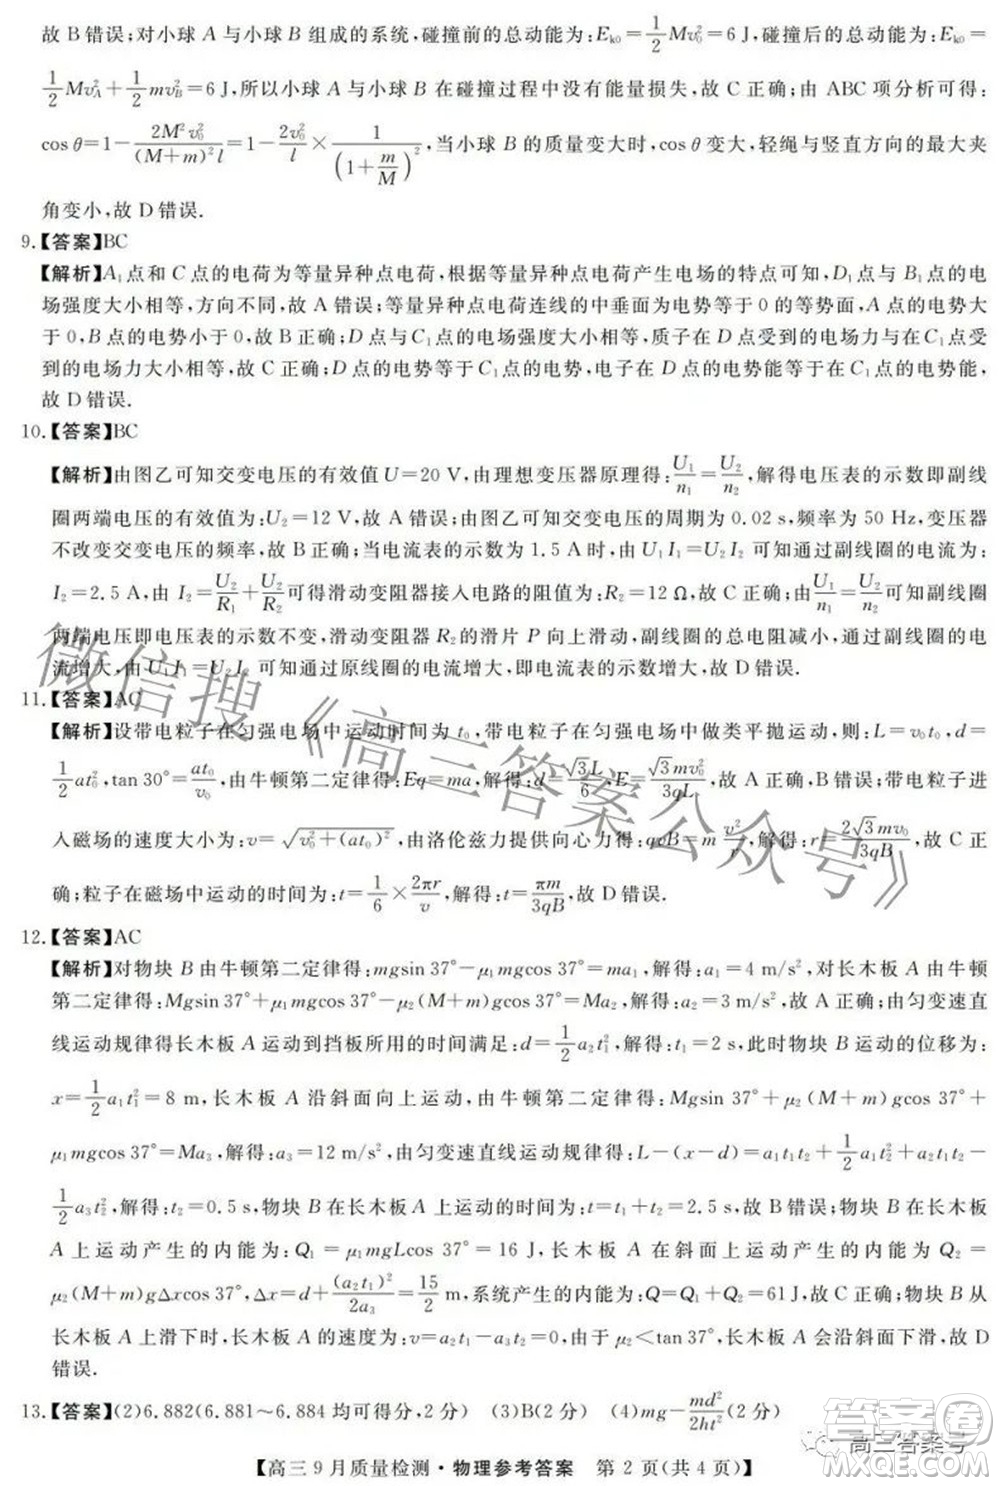 故 B 错误;对小球 A 与小球 B 组成的系统,碰撞前的总动能为:E_{k0}=\frac{1}{2}Mv_0^2=6 J,碰撞后的总动能为:E_{k0}=
\frac{1}{2}Mv_A^2+\frac{1}{2}mv_B^2=6 J,所以小球 A 与小球 B 在碰撞过程中没有能量损失,故 C 正确;由 ABC 项分析可得:
cos θ=1-\frac{2M^2v_0^2}{(M+m)^2l}=1-\frac{2v_0^2}{l}×\frac{1}{(1+\frac{m}{M})^2},当小球 B 的质量变大时,cos θ 变大,轻绳与竖直方向的最大夹
角变小,故 D 错误.
9.【答案】BC
【解析】A₁点和 C 点的电荷为等量异种点电荷,根据等量异种点电荷产生电场的特点可知,D₁点与 B 点的电
场强度大小相等,方向不同,故 A 错误;等量异种点电荷连线的中垂面为电势等于 0 的等势面,A 点的电势大
于 0,B 点的电势小于 0,故 B 正确;D 点与 C₁点的电场强度大小相等,质子在 D 点受到的电场力与在 C₁点受
到的电场力大小相等,故 C 正确;D 点的电势等于 C₁点的电势,电子在 D 点的电势能等于在 C₁点的电势能,
故 D 错误.
10.【答案】BC
【解析】由图乙可知交变电压的有效值 U=20 V,由理想变压器原理得:\frac{U_1}{n_1}=\frac{U_2}{n_2},解得电压表的示数即副线
圈两端电压的有效值为:U₂=12 V,故 A 错误;由图乙可知交变电压的周期为 0.02 s,频率为 50 Hz,变压器
不改变交变电压的频率,故 B 正确;当电流表的示数为 1.5 A 时,由 U₁I₁=U₂I₂ 可知通过副线圈的电流为:
I₂=2.5 A,由 I₂=\frac{U_2}{R_1}+\frac{U_2}{R_2}可得滑动变阻器接入电路的阻值为:R₂=12 Ω,故 C 正确;由\frac{U_1}{n_1}=\frac{U_2}{n_2}可知副线圈
两端电压即电压表的示数不变,滑动变阻器 R₂的滑片 P 向上滑动,副线圈的总电阻减小,通过副线圈的电
流增大,由 U₁I₁=U₂I₂可知通过原线圈的电流增大,即电流表的示数增大,故 D 错误.
11.【答案】AC
【解析】设带电粒子在匀强电场中运动时间为 t₀,带电粒子在匀强电场中做类平抛运动,则:L=v₀t₀,d=
\frac{1}{2}at_0^2,tan 30°=\frac{at_0}{v_0},由牛顿第二定律得:Eq=ma,解得:d=\frac{\sqrt{3}L}{6},E=\frac{\sqrt{3}mv_0^2}{3qL},故 A 正确,B 错误;带电粒子进
入磁场的速度大小为:v=\sqrt{v_0^2+(at_0)^2},由洛伦兹力提供向心力有:qvB=m\frac{v^2}{r},解得:r=\frac{2\sqrt{3}mv_0}{3qB},故 C 正
确;粒子在磁场中运动的时间为:t=\frac{1}{6}×\frac{2πr}{v},解得:t=\frac{πm}{3qB},故 D 错误.
12.【答案】AC
【解析】对物块 B 由牛顿第二定律得:mgsin 37°-μ₁mgcos 37°=ma₁,解得:a₁=4 m/s²,对长木板 A 由牛顿
第二定律得:Mgsin 37°+μ₁mgcos 37°-μ₂(M+m)gcos 37°=Ma₂,解得:a₂=3 m/s²,故 A 正确;由匀变速直
线运动规律得长木板 A 运动到挡板所用的时间满足:d=\frac{1}{2}a_2t_1^2,解得:t₁=2 s,此时物块 B 运动的位移为:
x=\frac{1}{2}a_1t_1^2=8 m,长木板 A 沿斜面向上运动,由牛顿第二定律得:Mgsin 37°+μ₂(M+m)gcos 37°+
μ₁mgcos 37°=Ma₃,解得:a₃=12 m/s²,由匀变速直线运动规律得:L-(x-d)=a₁t₁t₂+\frac{1}{2}a_1t_2^2+a₂t₁t₂-
\frac{1}{2}a_3t_2^2,解得:t₂=0.5 s,物块 B 在长木板 A 上运动的时间为:t=t₁+t₂=2.5 s,故 B 错误;物块 B 在长木板
A 上运动产生的内能为:Q₁=μ₁mgLcos 37°=16 J,长木板 A 在斜面上运动产生的内能为 Q₂=
μ₂(M+m)gΔxcos 37°,Δx=d+\frac{(a_2t_1)^2}{2a_3}=\frac{15}{2} m,系统产生的内能为:Q=Q₁+Q₂=61 J,故 C 正确;物块 B 从
长木板 A 上滑下时,长木板 A 的速度为:v=a₂t₁-a₃t₂=0,由于 μ₂<tan 37°,长木板 A 会沿斜面下滑,故 D
错误.
13.【答案】(2)6.882(6.881～6.884 均可得分,2 分) (3)B(2 分) (4)mg-\frac{md^2}{2ht^2}(2 分)
【高三 9 月质量检测·物理参考答案 第 2 页(共 4 页)】
微信搜《高三答案公众号》
高三答案号
答案圈
MXQE.COM